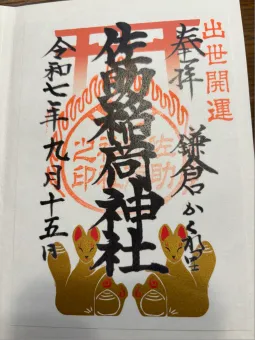 出世開運
奉拝
鎌倉かくれ里
佐助稲荷神社
令和七年九月十五日